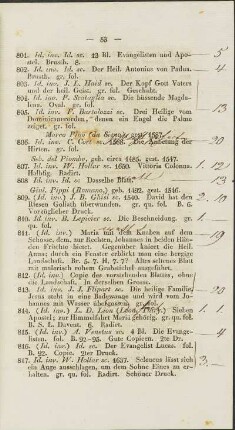 — 83 —
801. Id. inv. Id. sc. 12 Bl. Evangelisten und Apo-
stel. Brustb. 8.
802. Id. inv. Id. sc. Der Heil. Antonius von Padua.
Brustb. gr. fol.
803. Id. inv. J. L. Haid sc. Der Kopf Gott Vaters
und der heil. Geist. gr. fol. Geschabt.
804. Id. inv. P. sc. Die büssende Magda-
lena. Oval. gr. fol.
805. Id. inv. F. Bartolozzi sc. Drei Heilige vom
Dominicanerorden, denen ein Engel die Palme
zeigt. gr. fol.
Marco Pino
806. Id. inv. C. Cort sc. 1568. Die Anbetung der
Hirten. gr. fol.
Seb. del Piombo, geb. circa 1485. gest. 1547.
807. Id. inv. W. Hollar sc. 1650. Vittoria Colonna.
Halbfig. Radirt.
808. Id. inv. Id. sc. Dasselbe Blatt.
Giul. Pippi (Romano,) geb. 1492. gest. 1546.
809. Id. inv. J. B. Ghisi sc. 1540. David hat den
Riesen Goliath überwunden. gr. qu. fol. B. 6.
Vorzüglicher Druck.
810. Id. inv. B. Lepicier sc. Die Beschneidung. gr.
qu. fol.
811. (Id. inv.) Maria mit dem Knaben auf dem
Schosse, dem, zur Rechten, Johannes in beiden Hän-
den Früchte bietet. Gegenüber kniet die Heil.
Anna; durch ein Fenster erblickt man eine bergige
Landschaft. Br. 5. 7. H. 7. 7. Altes seltenes Blatt
mit malerisch rohem Grabstichel ausgeführt.
812. (Id. inv.) Copie des vorstehenden Blattes, ohne
die Landschaft. In derselben Grösse.
813. Id. inv. J. J. Flipart sc. Die heilige Familie,
Jesus steht in einer Badewanne und wird vom Jo-
hannes mit Wasser übergossen. gr. fol.
814. (Id. inv.) L. D. Sieben
Apostel; zur Himmelfahrt Mariä gehörig. gr. qu. fol.
B. S. L. Davent. 6. Radirt.
815. (Id. inv.) A. Venetus sc. 4 Bl. Die Evange-
listen. fol. B. 92–95 Gute Copieen. 2te Dr.
816. (Id. inv.) Id. sc. Der Evangelist Lucas. fol.
B. 92. Copie. 2ter Druck.
817. Id. inv. W. Hollar sc. 1637. Seleucus lässt sich
ein Auge ausschlagen, um dem Sohne Eines zu er-
halten. gr. qu. fol. Radirt. Schöner Druck.